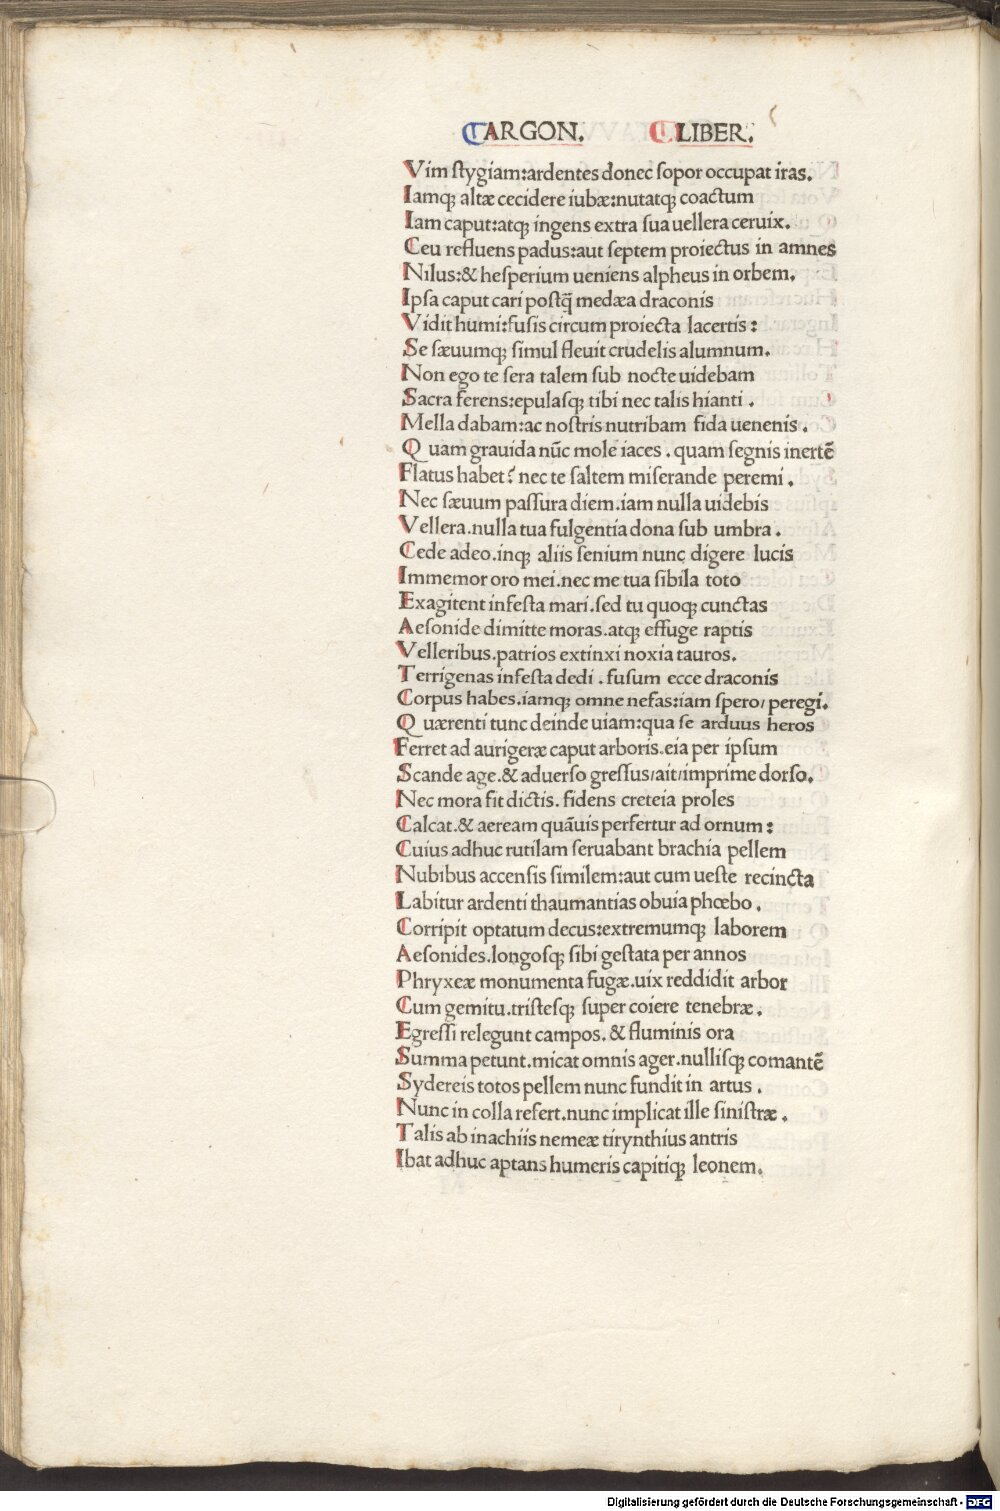 ARGON. LIBER.
Vim ſtygiam:ardentes donec ſopor occupat iras.
Iamqꝫ altæ cecidere iubæ:nutatqꝫ coactum
Iam caput:atqꝫ ingens extra ſua uellera ceruix.
Ceu refluens padus:aut ſeptem proiectus in amnes
Nilus:& heſperium ueniens alpheus in orbem.
Ipſa caput cari poſtq̄ medæa draconis
Vidit humi:fuſis circum proiecta lacertis:
Se ſæuumqꝫ ſimul fleuit crudelis alumnum.
Non ego te ſera talem ſub nocte uidebam
Sacra ferens:epulaſqꝫ tibi nec talis hianti.
Mella dabam:ac noſtris nutribam fida uenenis.
Quam grauida nūc mole iaces. quam ſegnis inertē
Flatus habet? nec te ſaltem miſerande peremi.
Nec ſæuum paſſura diem.iam nulla uidebis
Vellera.nulla tua fulgentia dona ſub umbra.
Cede adeo.inqꝫ aliis ſenium nunc digere lucis
Immemor oro mei.nec me tua ſibila toto
Exagitent infeſta mari.ſed tu quoqꝫ cunctas
Aeſonide dimitte moras.atqꝫ effuge raptis
Velleribus.patrios extinxi noxia tauros.
Terrigenas infeſta dedi.fuſum ecce draconis
Corpus habes.iamqꝫ omne nefas:iam ſpero/ peregi.
Quærenti tunc deinde uiam:qua ſe arduus heros
Ferret ad aurigeræ caput arboris.eia per ipſum
Scande age.& aduerſo greſſus/ait/imprime dorſo.
Nec mora fit dictis. fidens creteia proles
Calcat.& aeream quāuis perfertur ad ornum:
Cuius adhuc rutilam ſeruabant brachia pellem
Nubibus accenſis ſimilem:aut cum ueſte recincta
Labitur ardenti thaumantias obuia phœbo.
Corripit optatum decus:extremumqꝫ laborem
Aeſonides.longoſqꝫ ſibi geſtata per annos
Phryxeæ monumenta fugæ.uix reddidit arbor
Cum gemitu.triſteſqꝫ ſuper coiere tenebræ.
Egreſſi relegunt campos.& fluminis ora
Summa petunt.micat omnis ager.nulliſqꝫ comantē
Sydereis totos pellem nunc fundit in artus.
Nunc in colla refert.nunc implicat ille ſiniſtræ.
Talis ab inachiis nemeæ tirynthius antris
Ibat adhuc aptans humeris capitiqꝫ leonem.
Digitalisierung gefördert durch die Deutsche Forschungsgemeinschaft - DFG